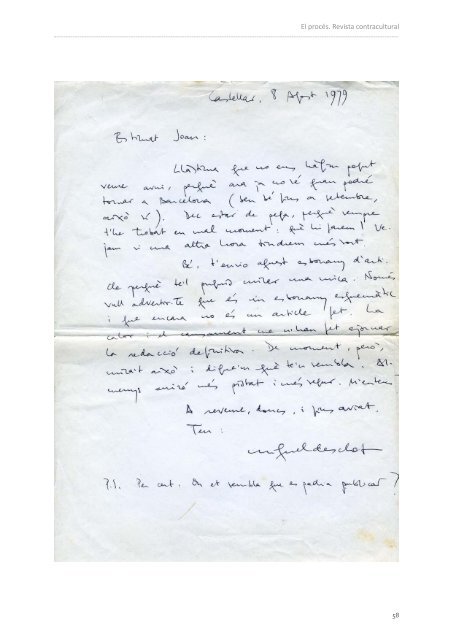 El procés. Revista contracultural
Castellar, 8 Agost 1979
Estimat Joan:
Llàstima que no ens hàgim pogut
veure avui, perquè ara ja no sé quan podré
tornar a Barcelona (ben bé fins a setembre,
això sí). Dec estar de pega, perquè sempre
t'he trobat en mal moment: què hi farem! Ve-
jam si una altra hora tindrem més sort.
Bé, t'envio aquest esborrany d'arti-
cle perquè te'l puguis mirar una mica. Només
vull advertir-te que és un esborrany esquemàtic
i que encara no és un article fet. La
calor i el cansament me n'han fet ajornar
la redacció definitiva. De moment, però,
mira't això i digue'm què te'n sembla. Al-
menys aniré més pistat i més segur. M'entens
A reveure, doncs, i fins aviat.
Teu:
miquel desclot
P.S. Per cert. On et sembla que es podria publicar?
58